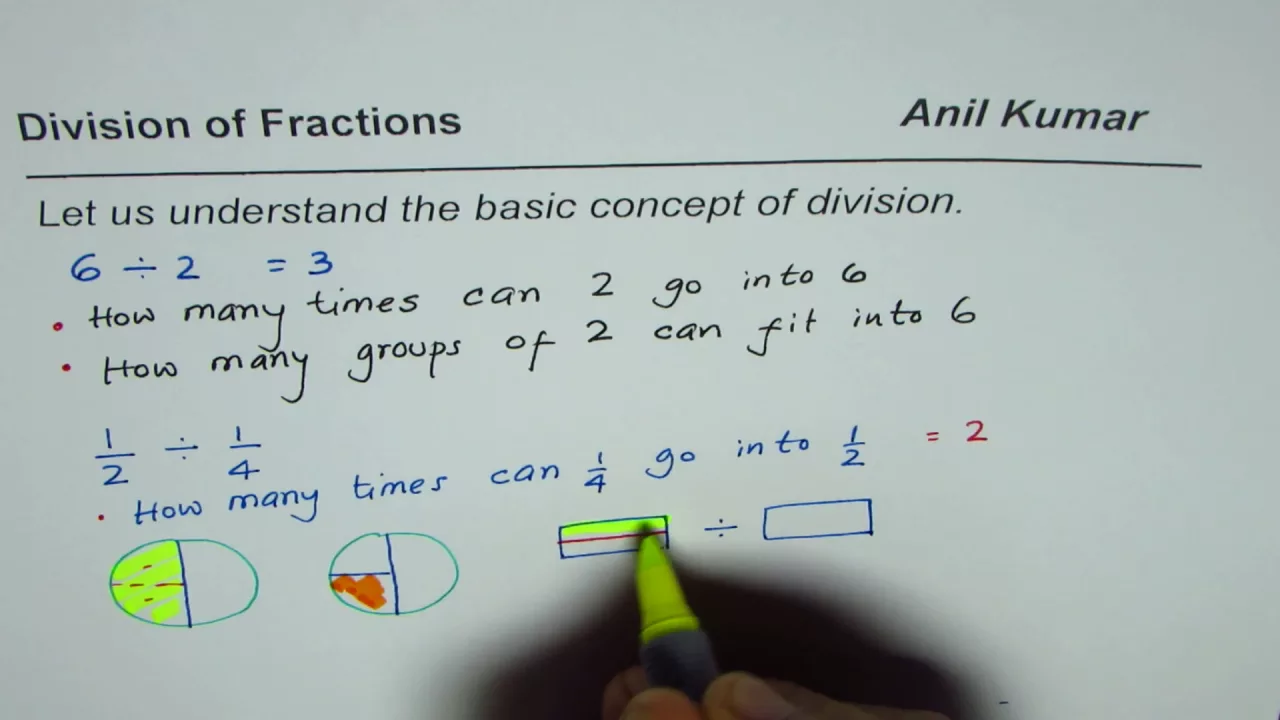 Division of Fractions Anil Kumar
Let us understand the basic concept of division.
6 ÷ 2 = 3
• How many times can 2 go into 6
• How many groups of 2 can fit into 6
1/2 ÷ 1/4
• How many times can 1/4 go into 1/2 = 2
÷